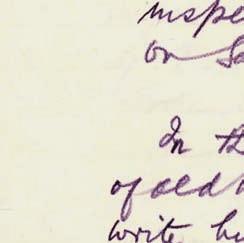 inspe
on S
In th
of old
write hi